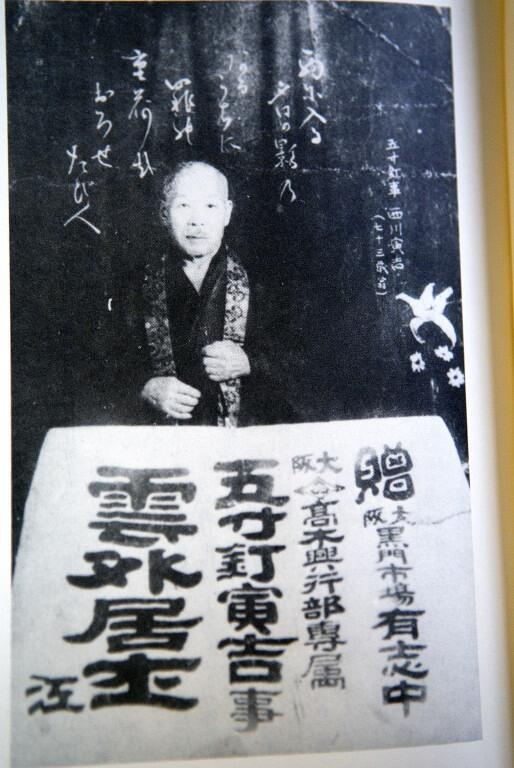 西に入る
月日の影の
ある
うちに
罪の
重荷を
おろせ
旅人
五寸釘事 西川寅吉
(七十三歳当)
贈
大阪 黒門市場有志中
大阪 高木興行部専属
五寸釘寅吉事
雲外居士
江